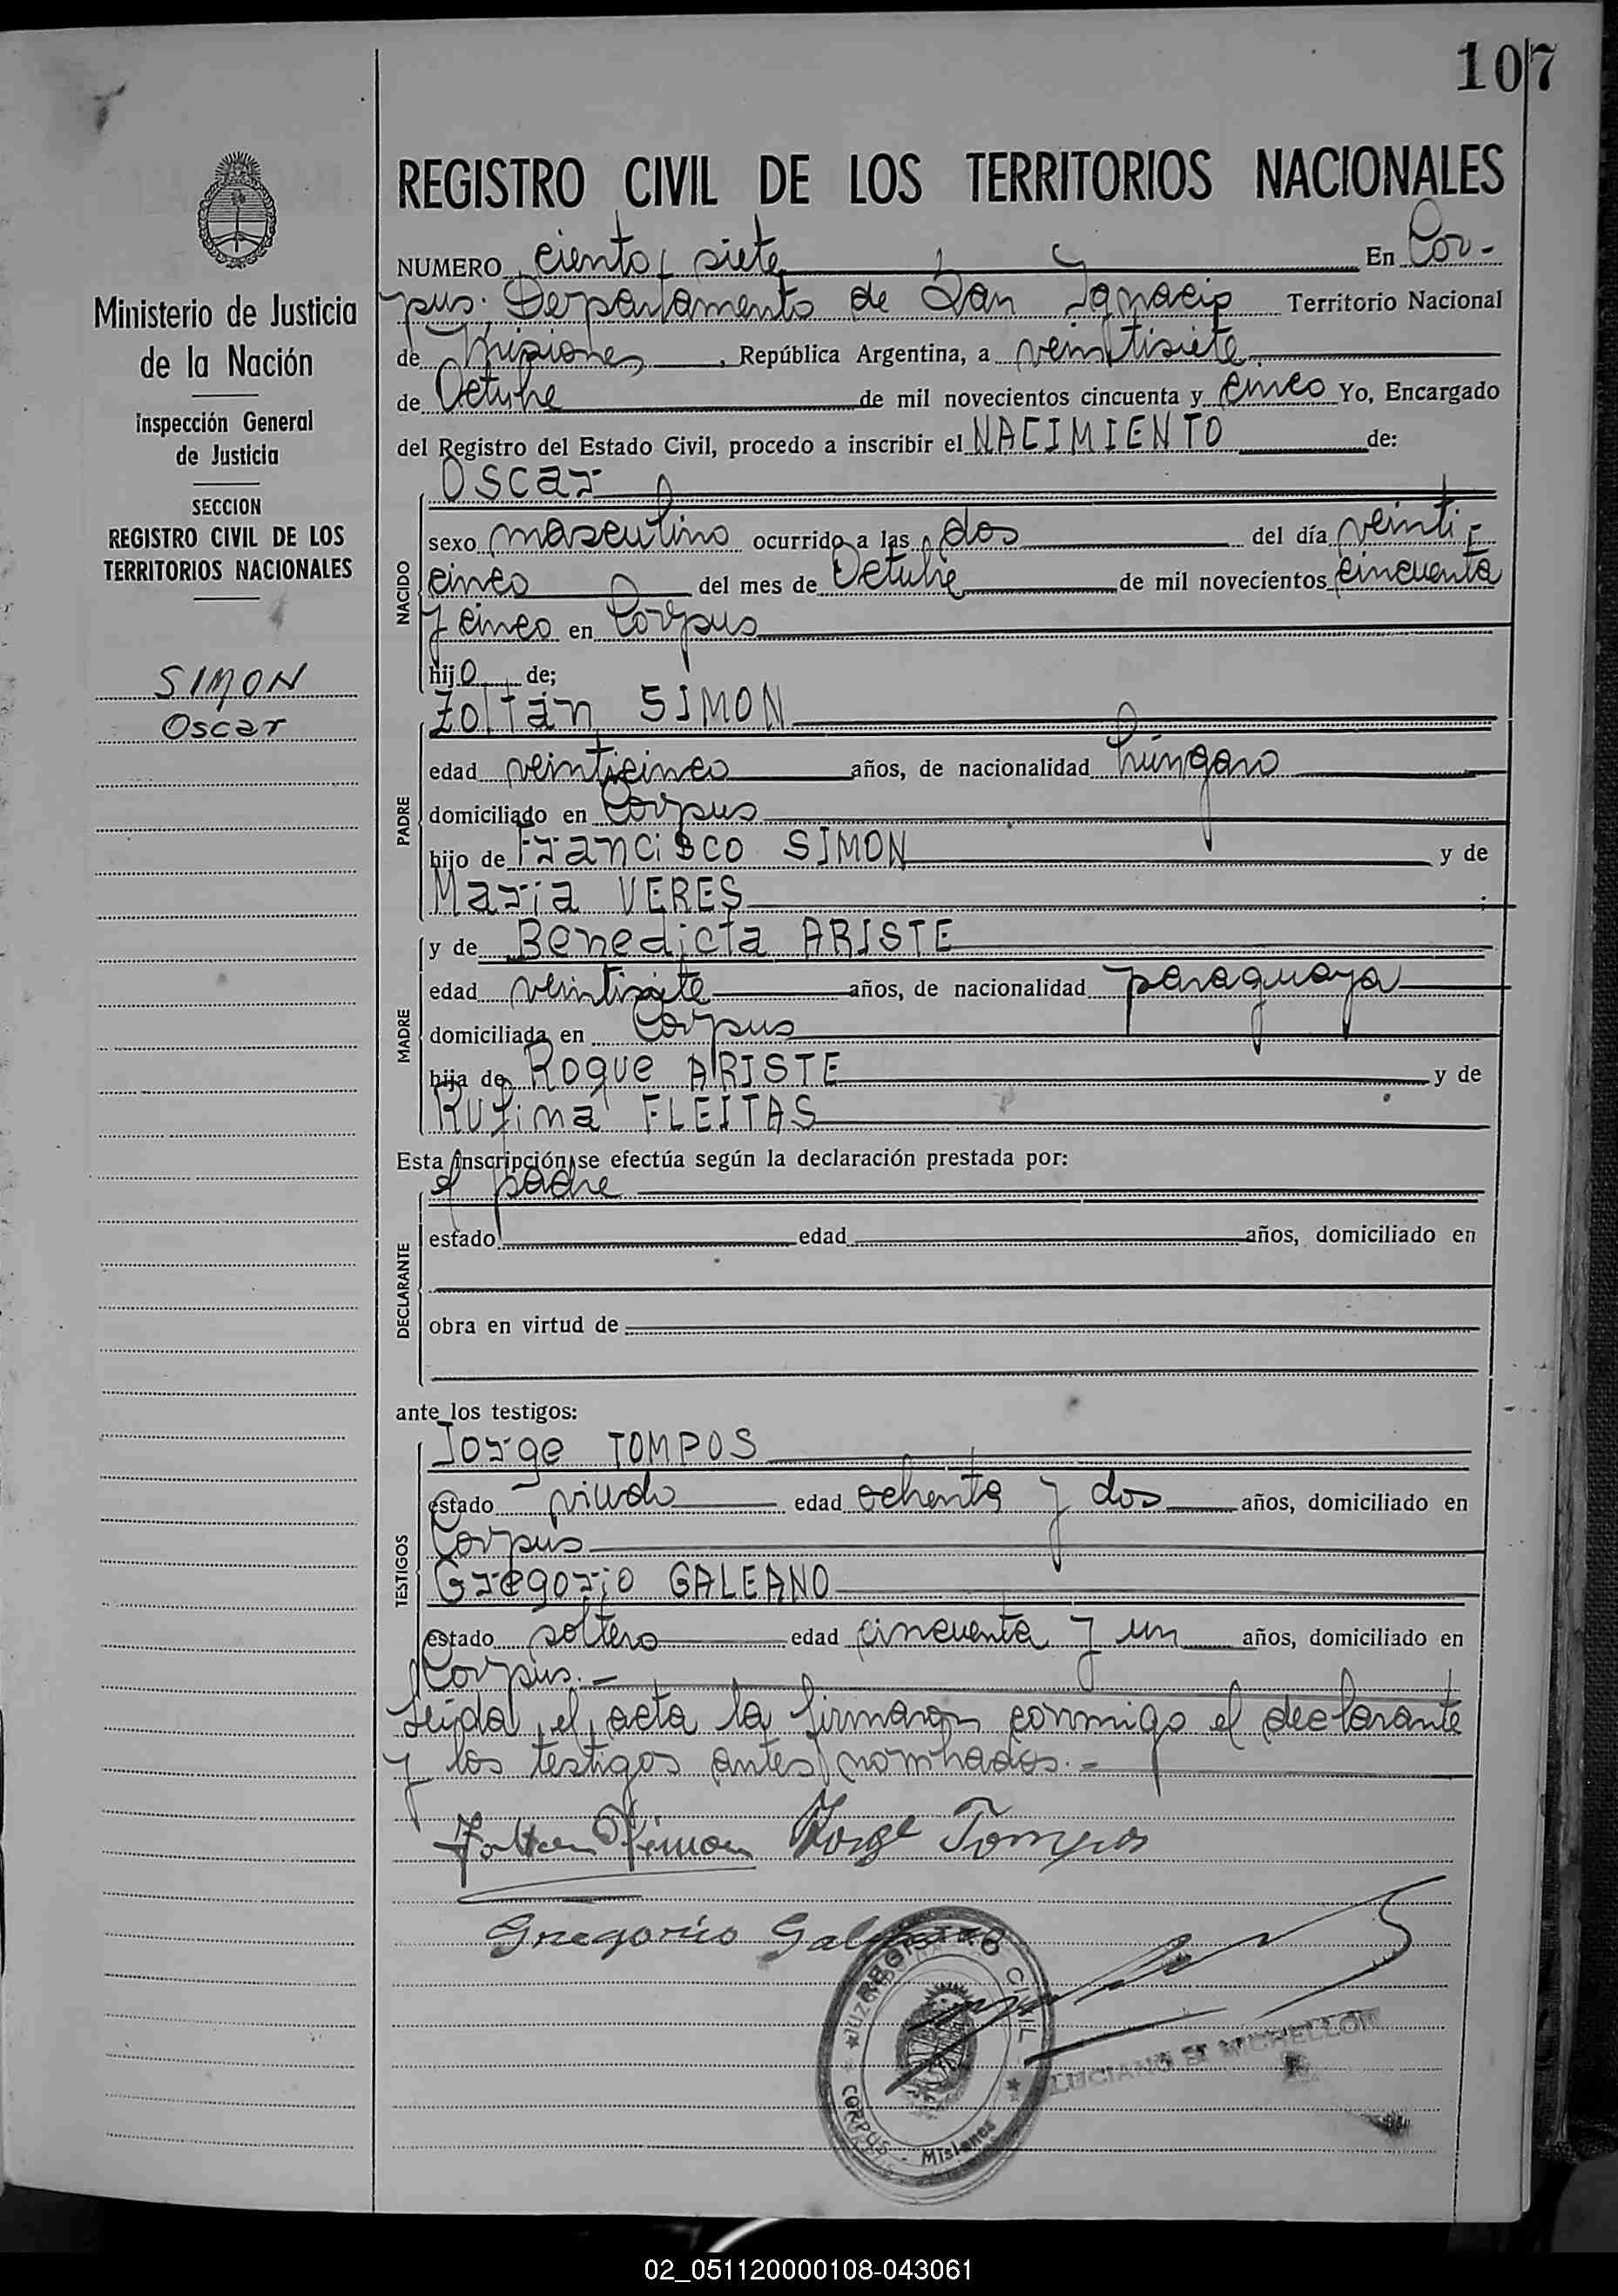 107
REGISTRO CIVIL DE LOS TERRITORIOS NACIONALES
NUMERO ciento siete En Cor-
pus. Departamento de San Ignacio Territorio Nacional
de Misiones, República Argentina, a veintisiete
de Octubre de mil novecientos cincuenta y cinco Yo, Encargado
del Registro del Estado Civil, procedo a inscribir el NACIMIENTO de:
Ministerio de Justicia
de la Nación
Inspección General
de Justicia
SECCION
REGISTRO CIVIL DE LOS
TERRITORIOS NACIONALES
SIMON
Oscar
NACIDO
Oscar
sexo masculino ocurrido a las dos del día veinti-
cinco del mes de Octubre de mil novecientos cincuenta
y cinco en Corpus
hijo de;
PADRE
Zoltán SIMON
edad veinticinco años, de nacionalidad húngaro
domiciliado en Corpus
hijo de Francisco SIMON y de
Maria VERES;
MADRE
y de Benedicta ARISTE
edad veintisiete años, de nacionalidad paraguaya
domiciliada en Corpus
hija de Roque ARISTE y de
Rufina FLEITAS
Esta inscripción se efectúa según la declaración prestada por:
DECLARANTE
el padre
estado edad años, domiciliado en
obra en virtud de
ante los testigos:
TESTIGOS
Jorge TOMPOS
estado viudo edad ochenta y dos años, domiciliado en
Corpus
Gregorio GALEANO
estado soltero edad cincuenta y un años, domiciliado en
Corpus.-
Leida el acta la firmaron conmigo el declarante
y los testigos antes nombrados.-
Zoltan Simon Jorge Tompos
Gregorio Galeano
JUZGADO REGISTRO CIVIL
CORPUS - Misiones
LUCIANO
02_051120000108-043061